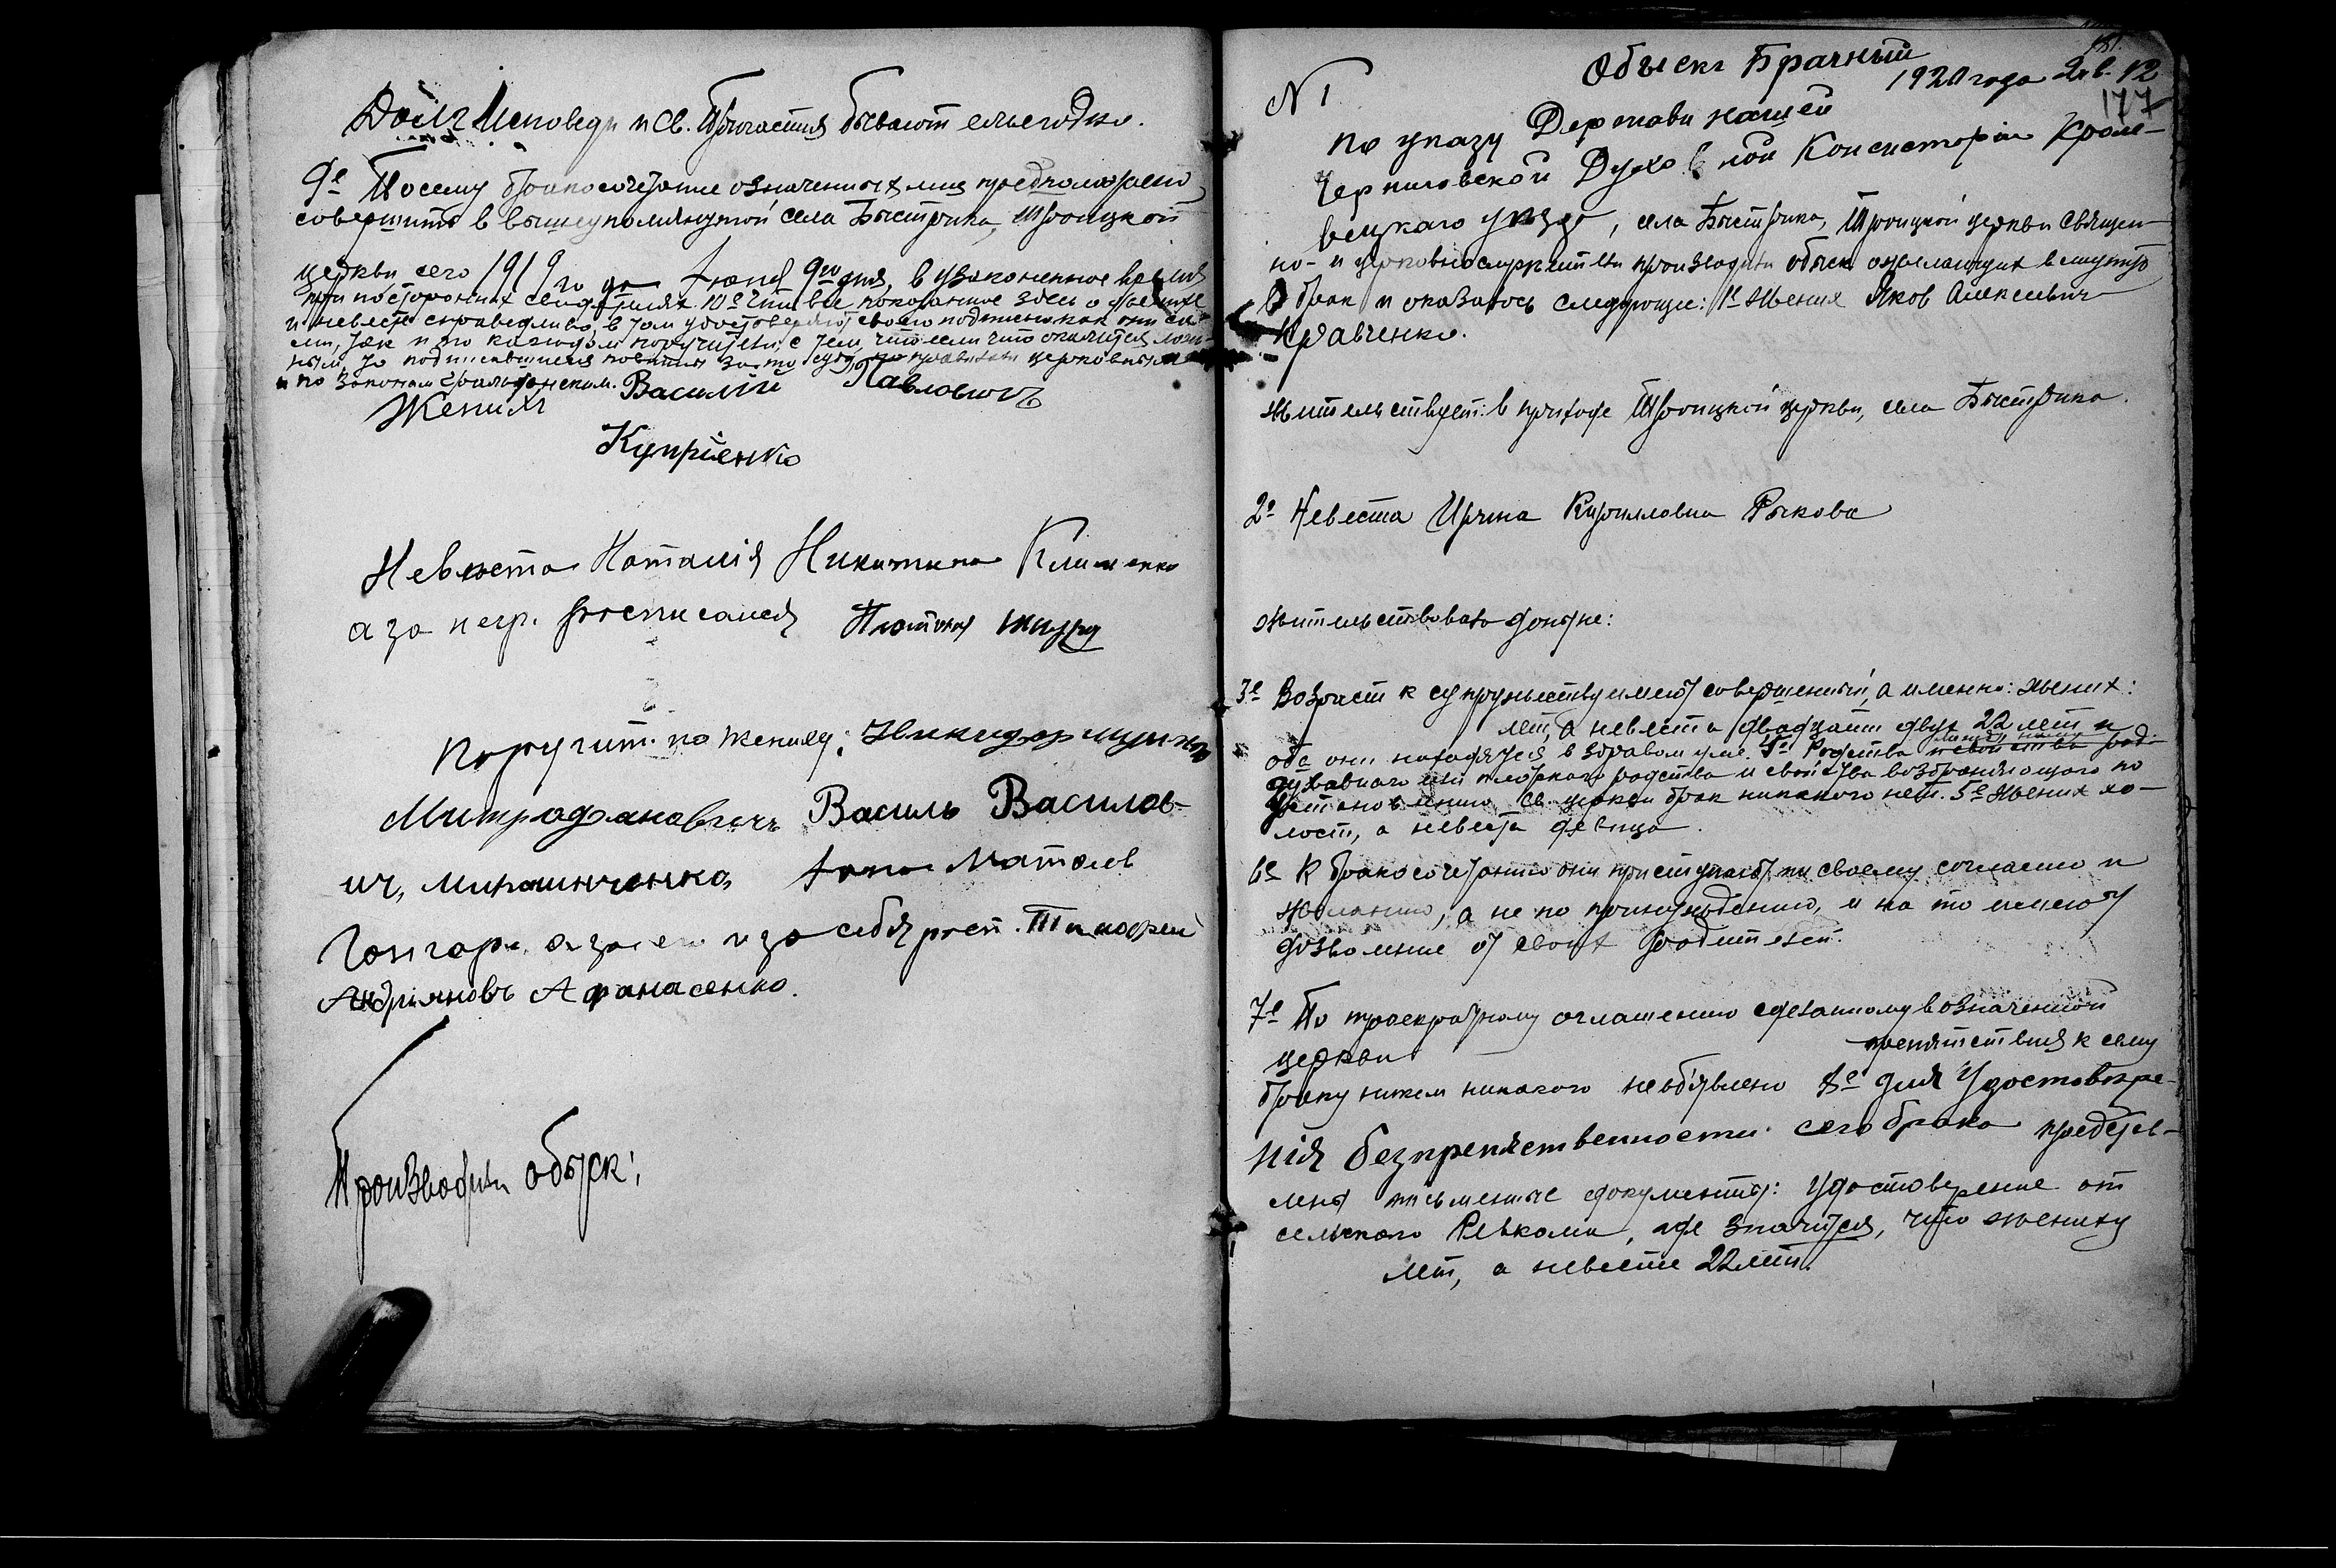 Долг Исповеди и Св. Причастия бывают ежегодно.
9е Посему бракосочетание означенных лиц предположено
совершить в вышеупомянутой села Быстрика, Троицкой
церкви сего 1919 го да Июня 9го дня, в узаконенное время
при посторонних свидетелях. 10е Что все показанное здесь о женихе
и невесте справедливо, в том удостоверяют своею подписью как они са-
ми, так и по каждом поручители, с тем, что если что окажется лож-
ным, то подписавшиеся повинны за то суду по правилам церковным
и по законам гражданским. Василій Павловичъ
Жених
Купріенко
Невеста Наталія Никитина Клименко
а за негр. росписался Платон
Поручит. по жениху: Никифор
Митрофановичъ Василь Васильов-
ич, Мирошниченко,
Гончар. а за его и за себя росп. Тимофей
Андріяновъ Афанасенко.
Производили обыск:
181.
177
Обыскъ Брачный
1920 года Янв. 12
N 1
По указу Державы нашей
Черниговской Духовной Консистории Кроле-
вецкаго уезда, села Быстрика, Троицкой церкви священ-
но- и церковнослужители производили обыск о желающих вступить
в брак и оказалось следующее: 1е Жених Яков Алексеевич
Кравченко.
жительствует: в приходе Троицкой церкви, села Быстрика.
2е Невеста Ирина Кирилловна Рыкова
жительствовала доныне:
3е Возраст к супружеству имеют совершенный, а именно: жених:
лет, а невеста двадцати двух 22 лет и
оба они находятся в здравом уме. 4е Родства между ними
духовного или плотского родства и свойства возбраняющаго по
установлению св. церкви брак никакого нет. 5е Жених хо-
лост, а невеста девица.
6е К бракосочетанию они приступают по своему согласию и
желанию, а не по принуждению, и на то имеют
дозволение от своих родителей.
7е По троекратному оглашению сделанному в означенной
церкви препятствия к сему
браку никем никакого необъявлено 8е для Удостовере-
нія безпрепятственности сего брака представ-
лены письменные документы: Удостоверение от
сельского Ревкома, где значится, что жениху
лет, а невесте 22 лет.